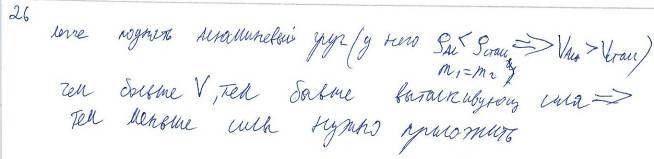 26
легче поднять алюминиевый груз (у него ρAl < ρстали => VAl > Vстали)
m₁ = m₂
чем больше V, тем больше выталкивующ сила =>
тем меньше силы нужно приложить